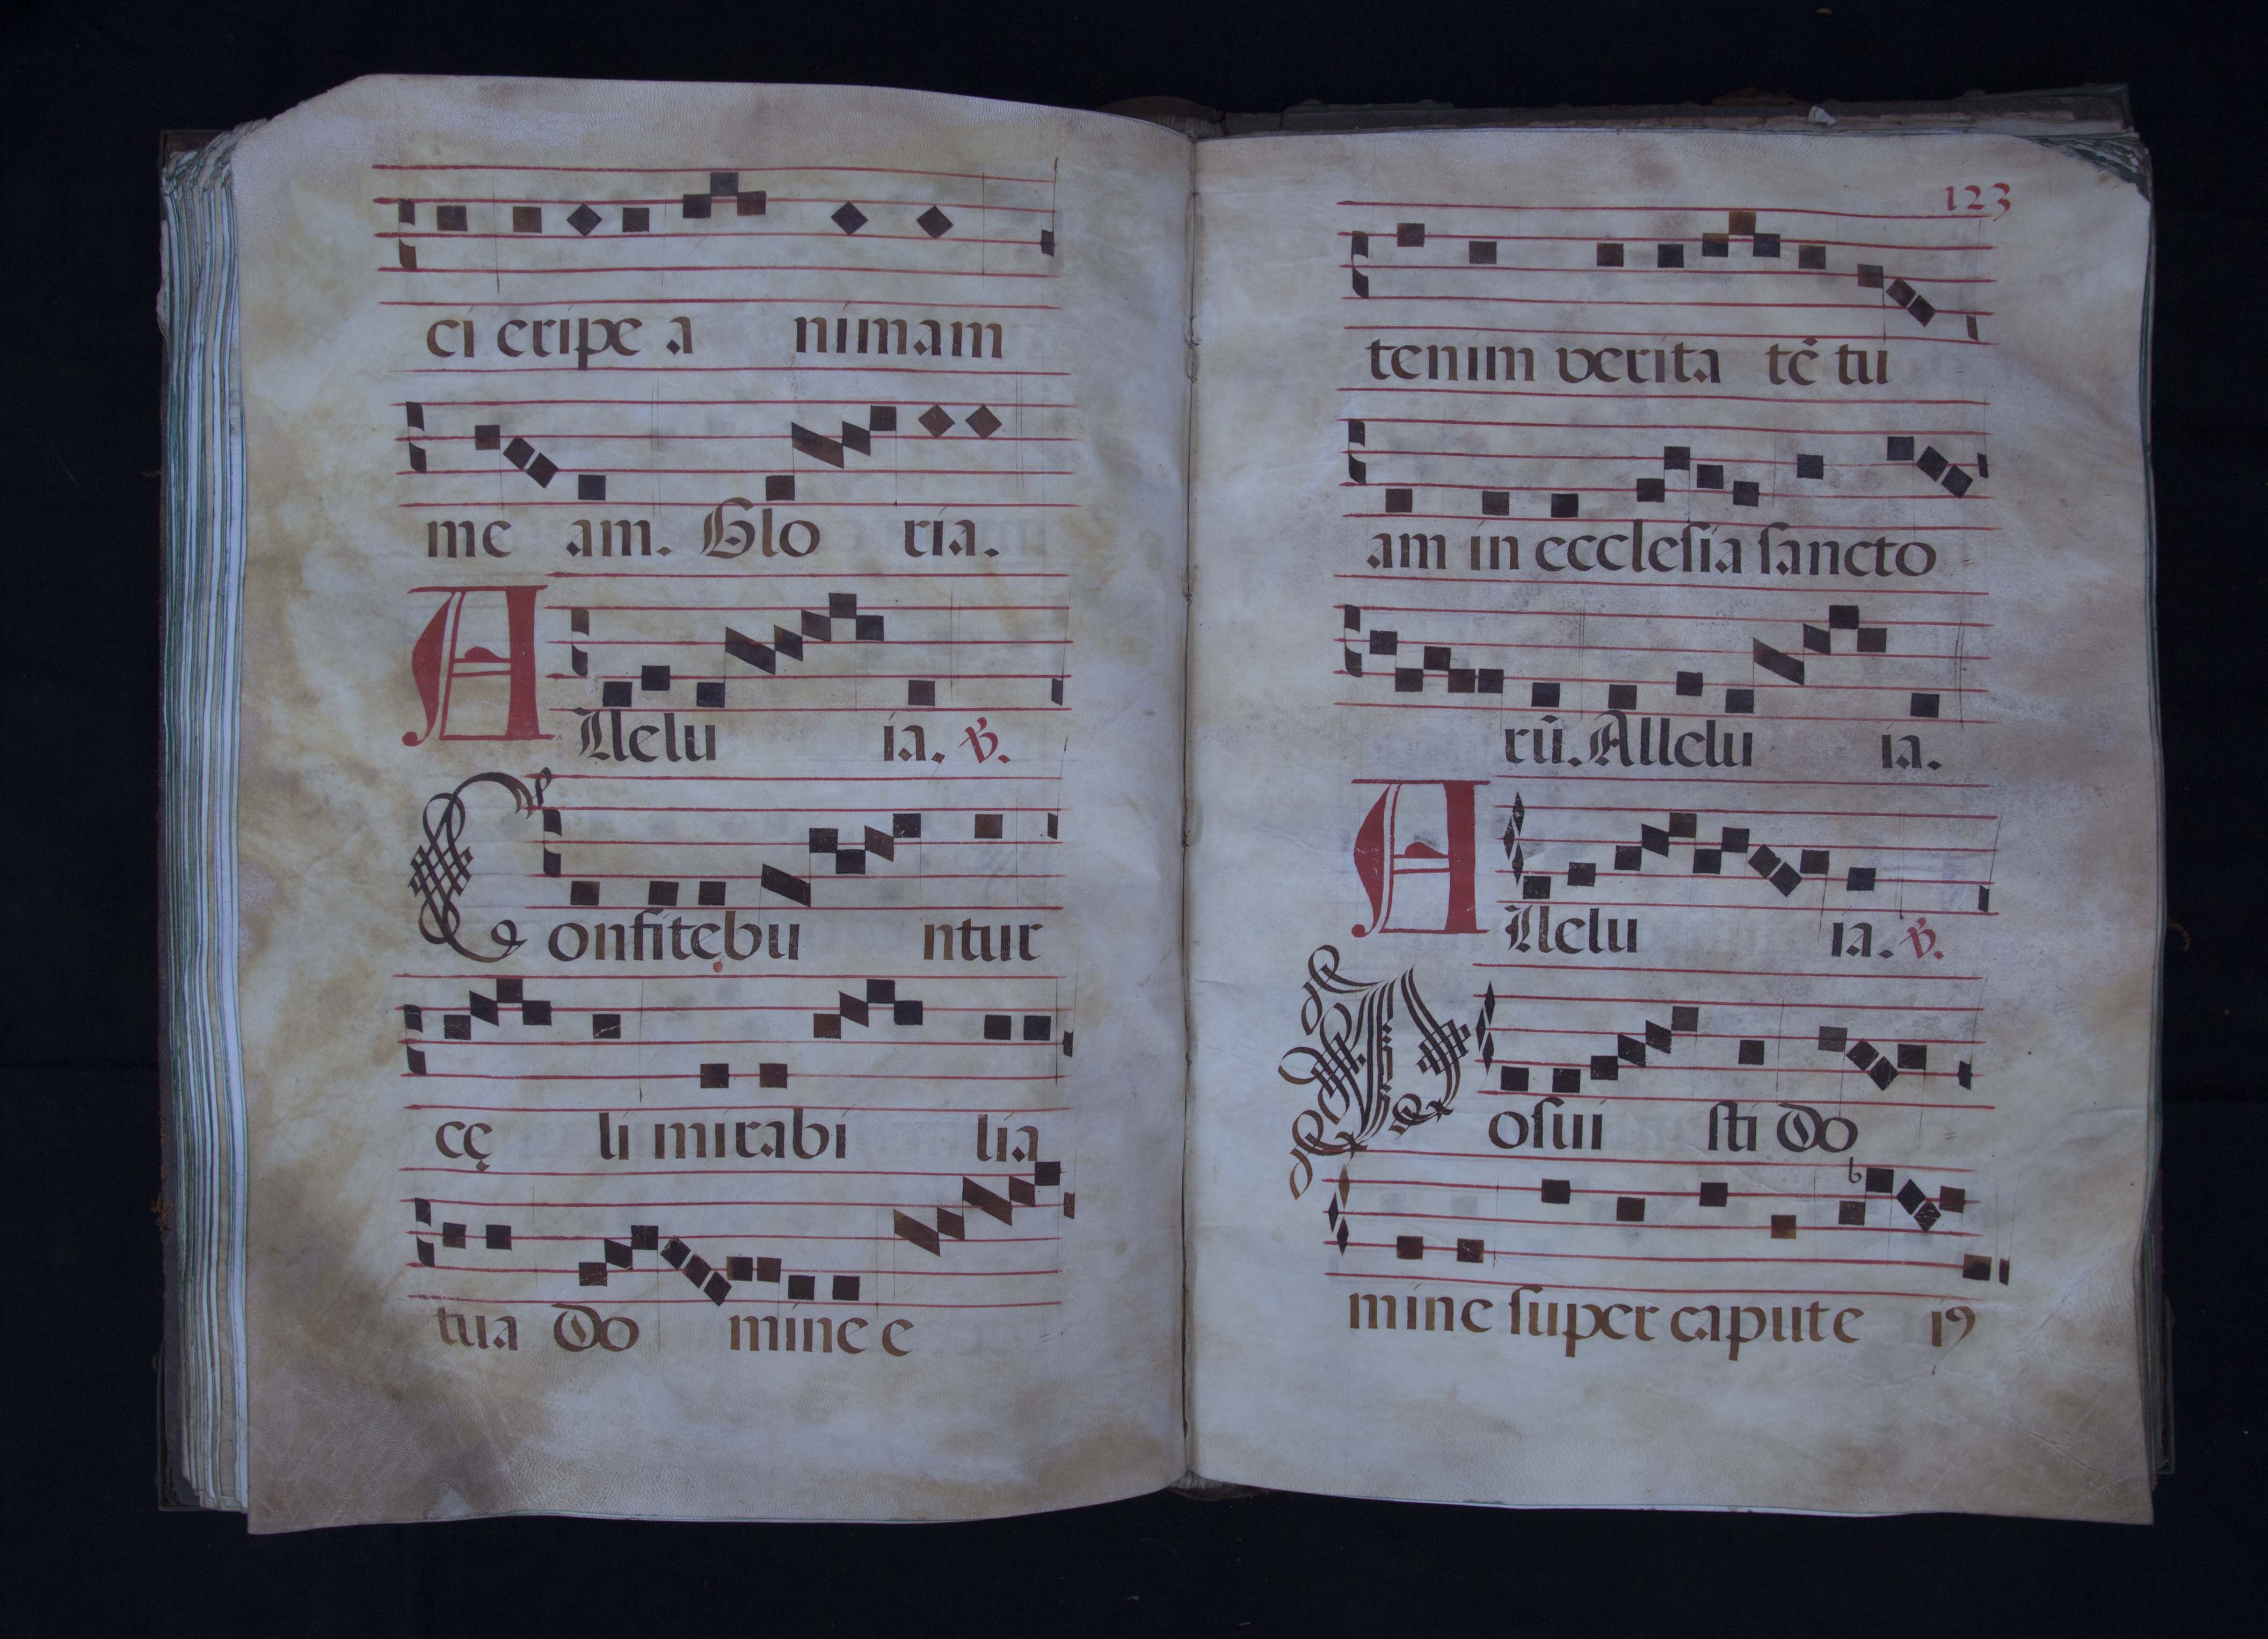 ci eripe a nimam
me am. Glo ria.
Allelu ia. ℣.
Confitebu ntur
cę li mirabi lia
tua Do mine e
123
tenim verita tē tu
am in eccleſia ſancto
rū. Allelu ia.
Allelu ia. ℣.
Poſui ſti Do
b
mine ſuper capute iꝰ